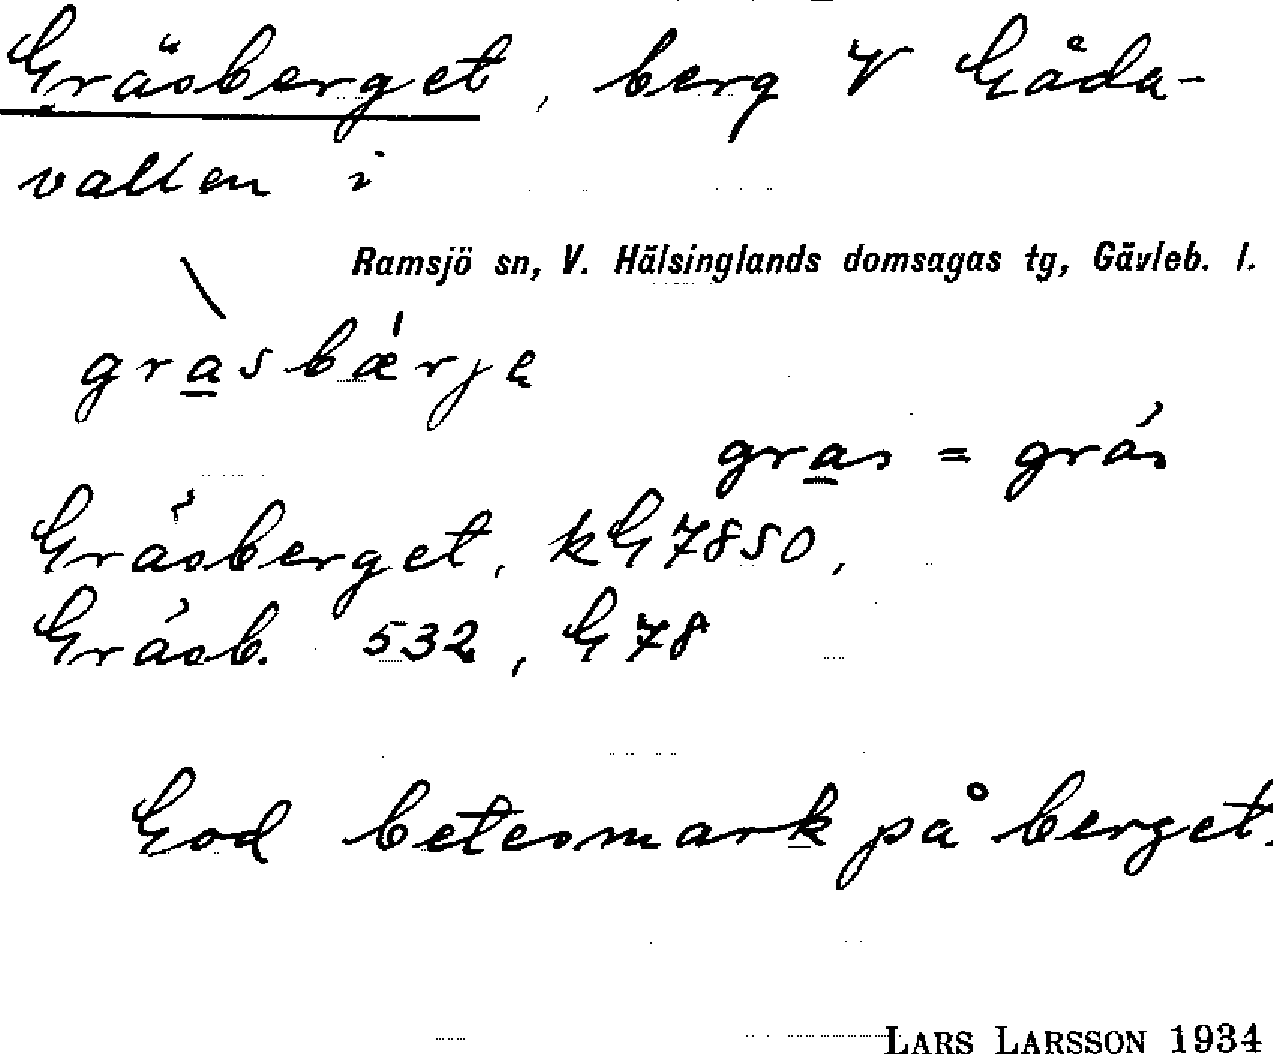 Gräsberget, berg V Gåda-
vallen i
Ramsjö sn, V. Hälsinglands domsagas tg, Gävleb. l.
grasbærje
gras = gräs
Gräsberget, kG7850,
Gräsb. 532, G78
God betesmark på berget.
LARS LARSSON 1934